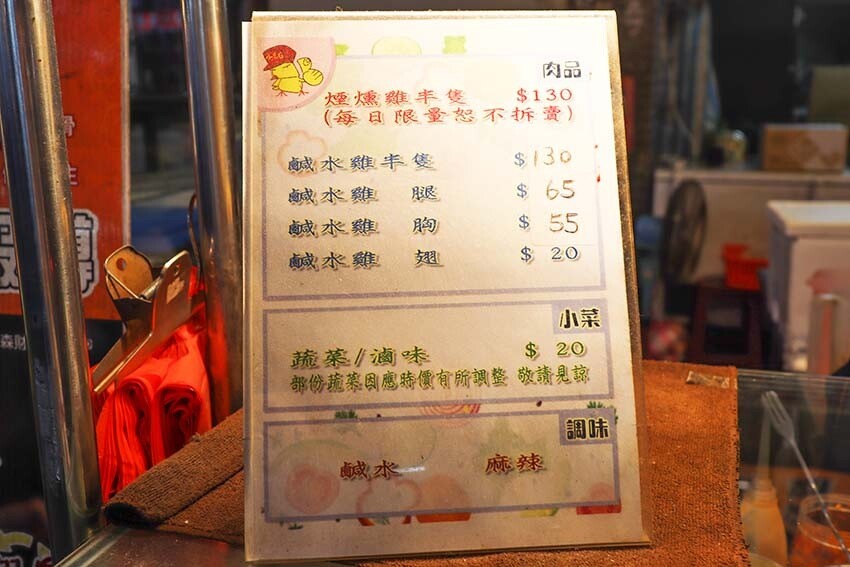 肉品
煙燻雞半隻 $130
(每日限量恕不拆賣)
鹹水雞半隻 $130
鹹水雞 腿 $ 65
鹹水雞 胸 $ 55
鹹水雞 翅 $ 20
小菜
蔬菜/滷味 $ 20
部份蔬菜因應時價有所調整 敬請見諒
調味
鹹水 麻辣
森財